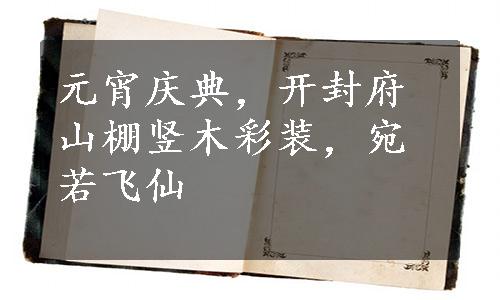 元宵庆典，开封府
山棚竖木彩装，宛
若飞仙